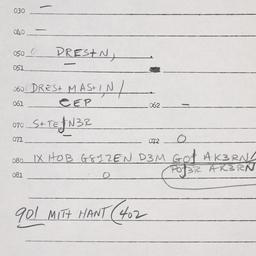 030 —
040 —
050 DRES+N,
051 —
060 DRES+ MAS+I,N/
061 CEP 062 —
070 S+TEJN3R
071 — 072 O
080 IX HOB G8IZEN D3M GOJ AK3RN/
081 O POJ3R AK3RN
901 MITH HANT (402